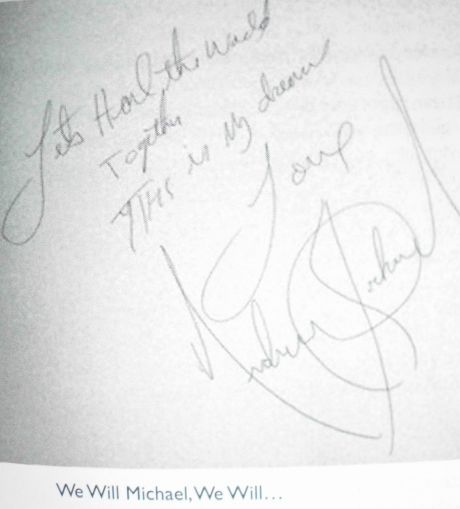 Lets Heal the World
Together
THis is My dream
Love
We Will Michael, We Will...